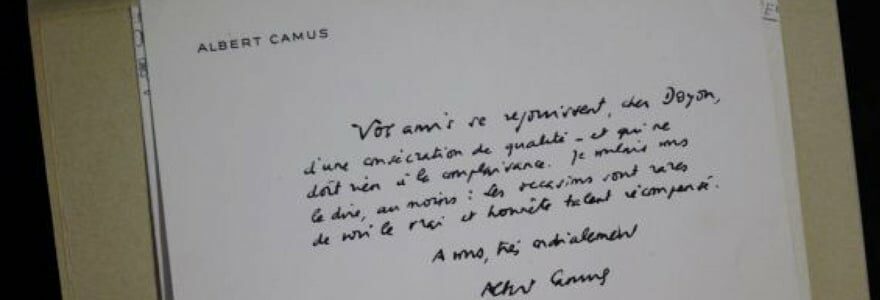 ALBERT CAMUS
Vos amis se réjouissent, cher Doyon,
d'une consécration de qualité - et qui ne
doit rien à la complaisance. Je voulais vous
le dire, au moins : les occasions sont rares
de voir le vrai et honnête talent récompensé.
A vous, très cordialement
Albert Camus